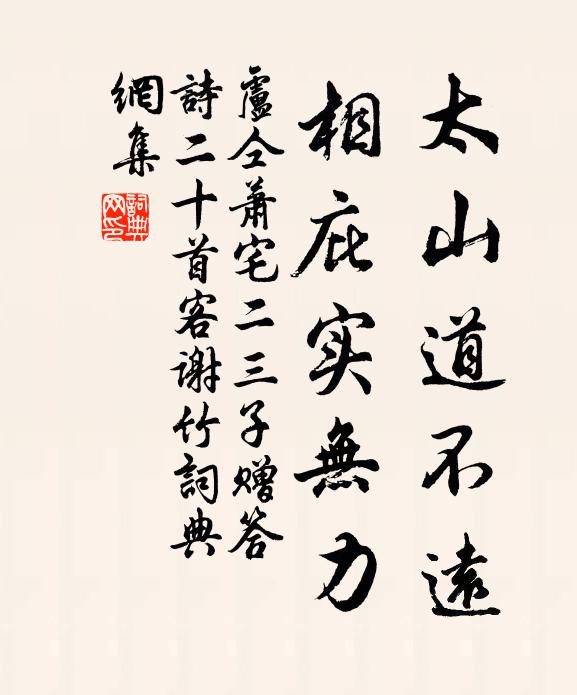 太山道不遠
相庇实無力
盧仝蕭宅二三子赠答
詩二十首客谢竹詞典
網集
詞典网印